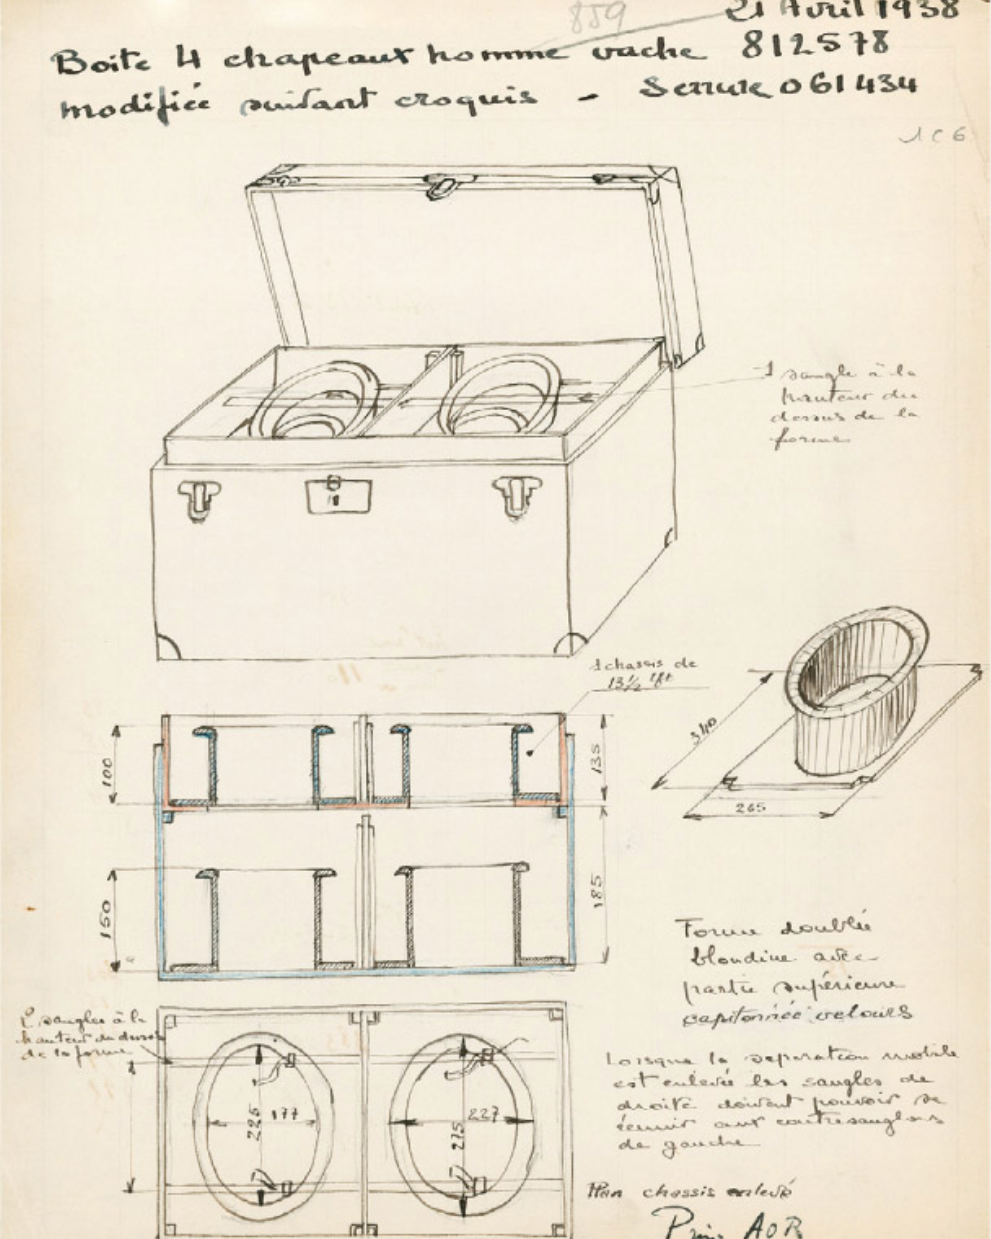 859
21 Avril 1938
Boite 4 chapeaux homme vache 812578
modifiée suivant croquis - Serrure 061434
1 sangle à la
hauteur du
dessus de la
forme
1 chassis de
13 1/2
340
265
100
135
150
185
Forme doublée
blondine avec
partie supérieure
capitonnée velours
2 sangles à la
hauteur du dessus
de la forme
225
177
275
227
Lorsque la separation mobile
est enlevée les sangles de
droite doivent pouvoir se
réunir aux contresanglons
de gauche
Plan chassis enlevé